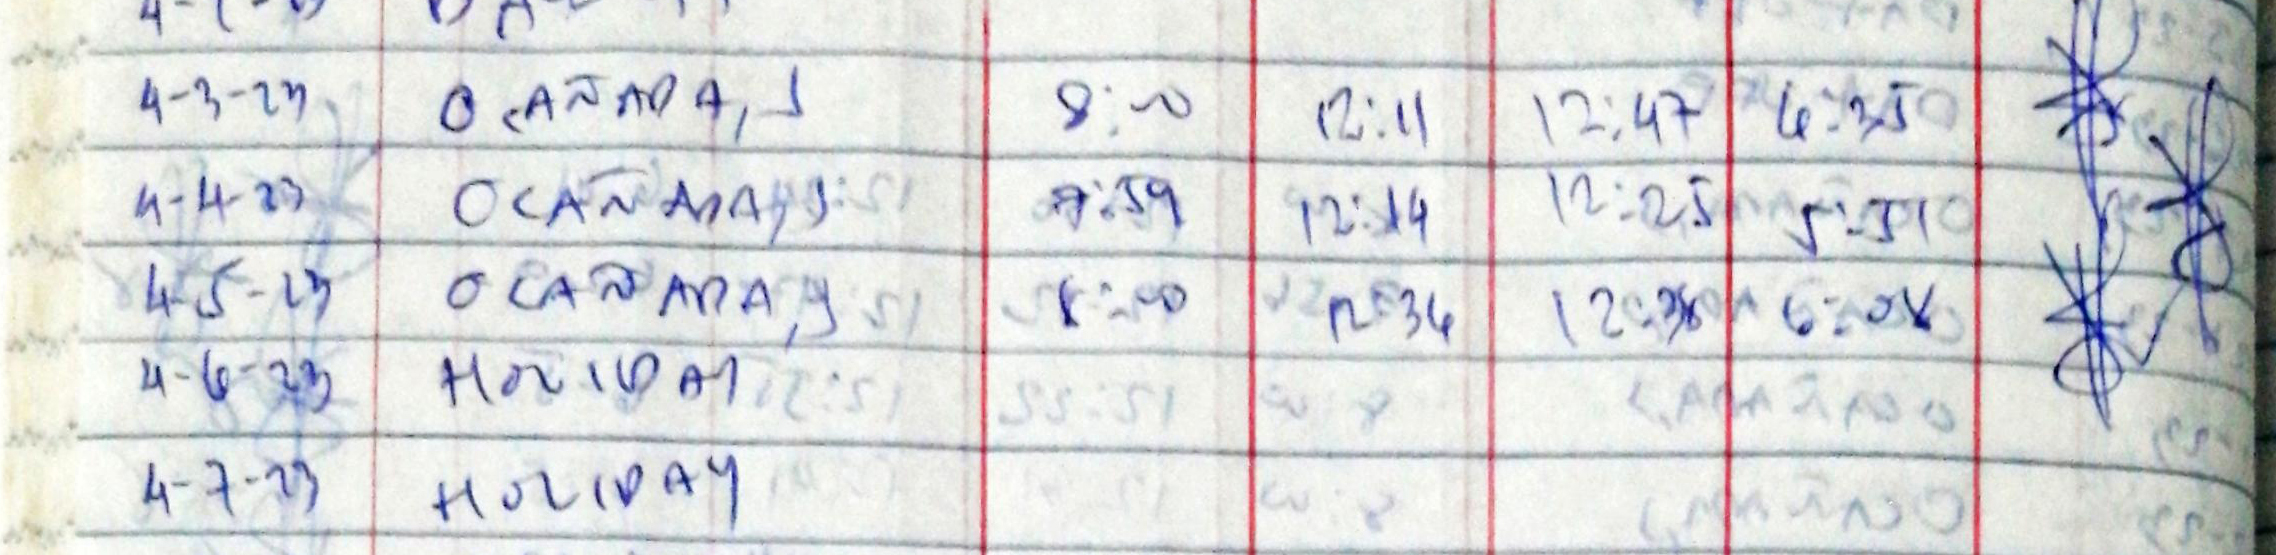 4-3-23 OCAÑADA, J 8:00 12:11 12:47 6:35
4-4-23 OCAÑADA, J 7:59 12:14 12:25 5:51
4-5-23 OCAÑADA, J 8:00 12:36 6:08
4-6-23 HOLIDAY
4-7-23 HOLIDAY